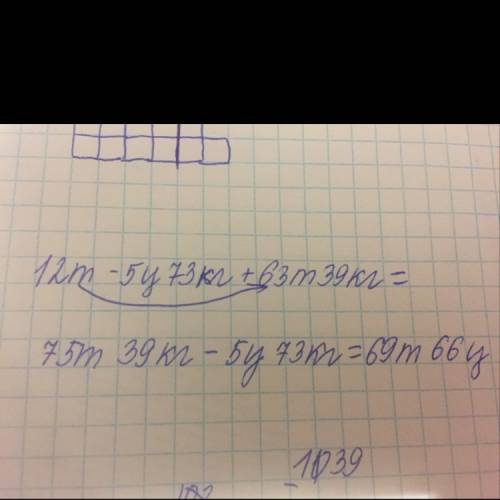 12т - 5ц 73кг + 63т 39кг =
75т 39кг - 5ц 73кг = 69т 66ц
1039
-